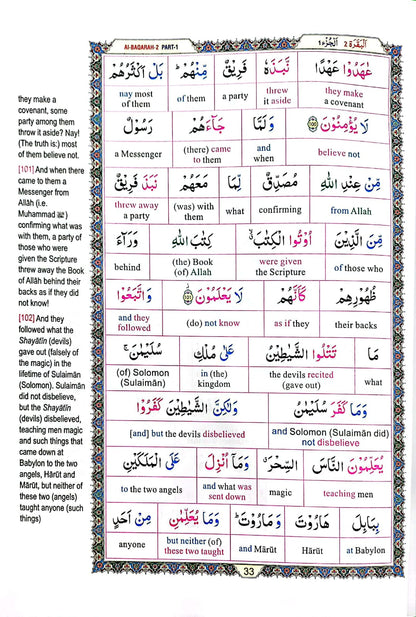 Al-BAQARAH-2 PART-1
الجُزْء ١ البَقَرَة ٢
they make a
covenant, some
party among them
throw it aside? Nay!
(The truth is:) most
of them believe not.
[101] And when there
came to them a
Messenger from
Allâh (i.e.
Muhammad ﷺ)
confirming what was
with them, a party of
those who were
given the Scripture
threw away the Book
of Allâh behind their
backs as if they did
not know!
[102] And they
followed what the
Shayâtîn (devils)
gave out (falsely of
the magic) in the
lifetime of Sulaimân
(Solomon). Sulaimân
did not disbelieve,
but the Shayâtîn
(devils) disbelieved,
teaching men magic
and such things that
came down at
Babylon to the two
angels, Hârût and
Mârût, but neither of
these two (angels)
taught anyone (such
things)
عٰهَدُوْا عَهْدًا نَّبَذَهٗ فَرِيْقٌ مِّنْهُمْ ؕ بَلْ اَكْثَرُهُمْ
they make a covenant threw it aside a party of them nay most of them
لَا يُؤْمِنُوْنَ ۝١٠٠ وَلَمَّا جَآءَهُمْ رَسُوْلٌ
believe not and when (there) came to them a Messenger
مِّنْ عِنْدِ اللهِ مُصَدِّقٌ لِّمَا مَعَهُمْ نَبَذَ فَرِيْقٌ
from Allah confirming what (was) with them threw away a party
مِّنَ الَّذِيْنَ اُوْتُوا الْكِتٰبَ ۙ كِتٰبَ اللهِ وَرَآءَ
of those who were given the Scripture (the) Book (of) Allah behind
ظُهُوْرِهِمْ كَاَنَّهُمْ لَا يَعْلَمُوْنَ ۝١٠١ وَاتَّبَعُوْا
their backs as if they (do) not know and they followed
مَا تَتْلُوا الشَّيٰطِيْنُ عَلٰى مُلْكِ سُلَيْمٰنَ ۚ
what the devils recited (gave out) in (the) kingdom (of) Solomon (Sulaimân)
وَمَا كَفَرَ سُلَيْمٰنُ وَلٰكِنَّ الشَّيٰطِيْنَ كَفَرُوْا
and Solomon (Sulaimân did) not disbelieve [and] but the devils disbelieved
يُعَلِّمُوْنَ النَّاسَ السِّحْرَ ۗ وَمَآ اُنْزِلَ عَلَى الْمَلَكَيْنِ
teaching men magic and what was sent down to the two angels
بِبَابِلَ هَارُوْتَ وَمَارُوْتَ ؕ وَمَا يُعَلِّمٰنِ مِنْ اَحَدٍ
at Babylon Hârût and Mârût but neither (of) these two taught anyone
33